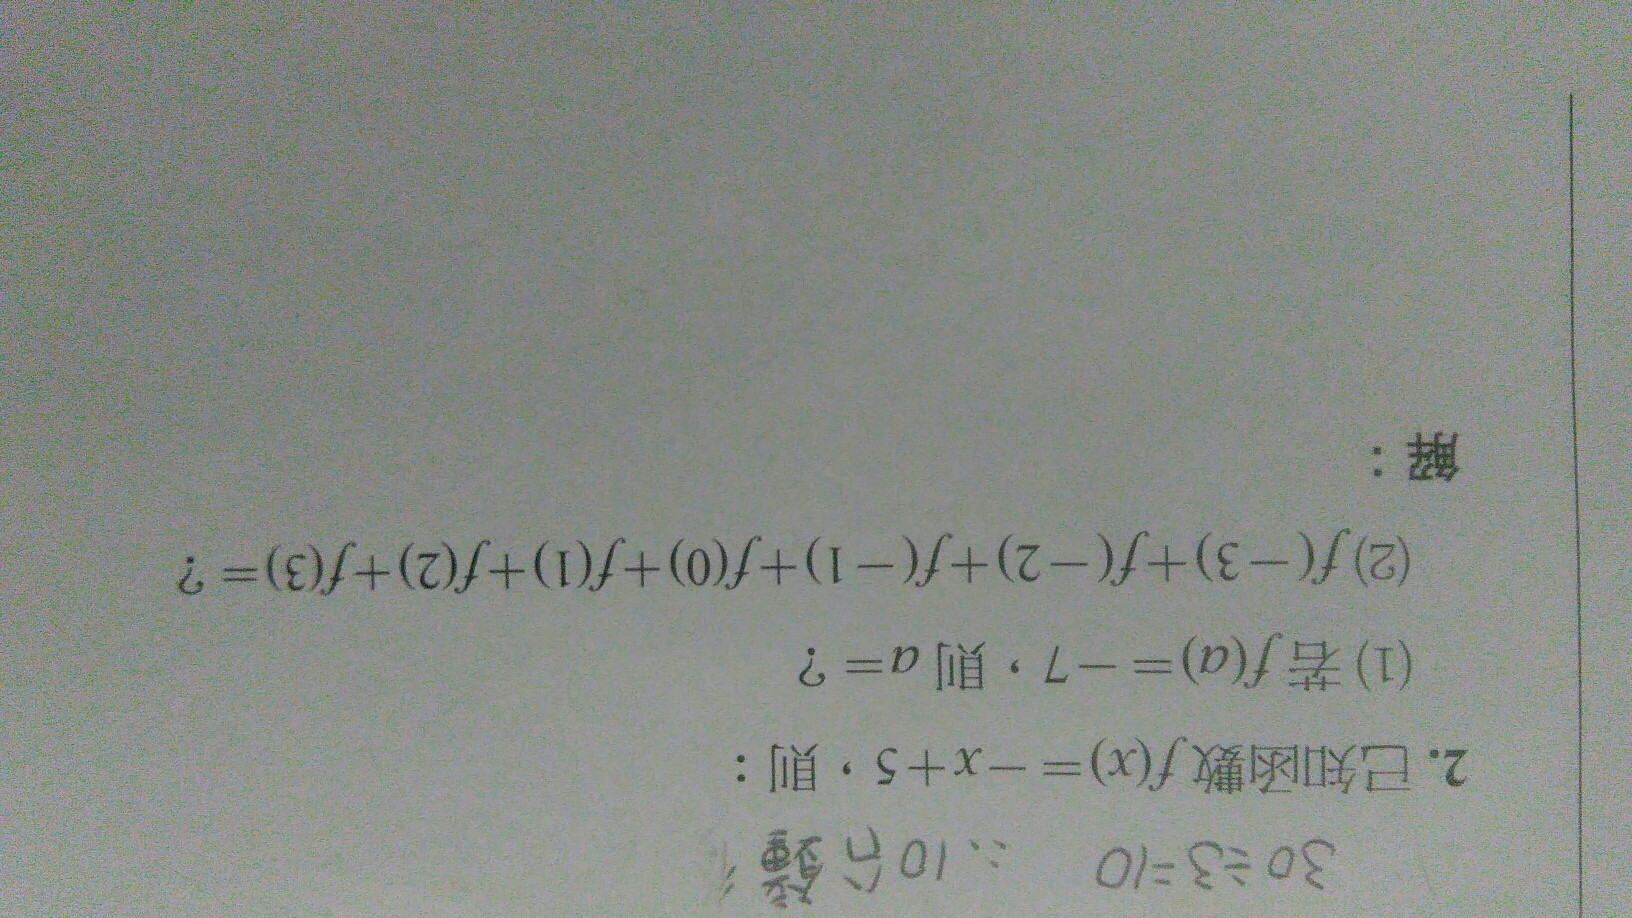 30÷3=10 ∴10分鐘
2. 已知函數 f(x)=－x+5，則：
(1) 若 f(a)=－7，則 a=？
(2) f(－3)+f(－2)+f(－1)+f(0)+f(1)+f(2)+f(3)=？
解：